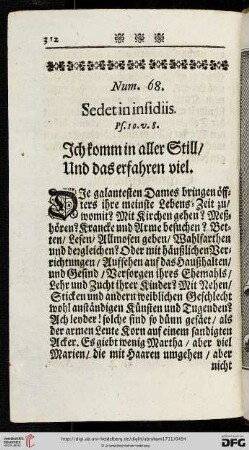 312
Num. 68.
Sedet in insidiis.
Ps. 10. v. 8.
Ich komm in aller Still/
Und das erfahren viel.
Die galantesten Dames bringen öff-
ters ihre meinste Lebens-Zeit zu/
womit? Mit Kirchen gehen? Meß-
hören? Krancke und Arme besuchen? Bet-
ten/ Lesen/ Allmosen geben/ Wahlfarthen
und dergleichen? Oder mit häußlichen Ver-
richtungen/ Aufsehen auf das Haußhalten/
und Gesind/ Versorgen ihres Ehemahls/
Lehr und Zucht ihrer Kinder? Mit Nehen/
Sticken und andern weiblichen Geschlecht
wohl anständigen Künsten und Tugenden?
Ach leyder! solche sind so dünn gesäet/ als
der armen Leute Korn auf einem sandigten
Acker. Es giebt wenig Martha/ aber viel
Marien/ die mit Haaren umgehen/ aber
nicht